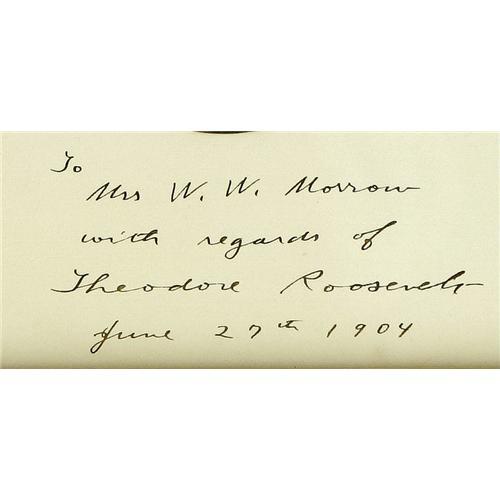 To
Mrs W. W. Morrow
with regards of
Theodore Roosevelt
June 27th 1904